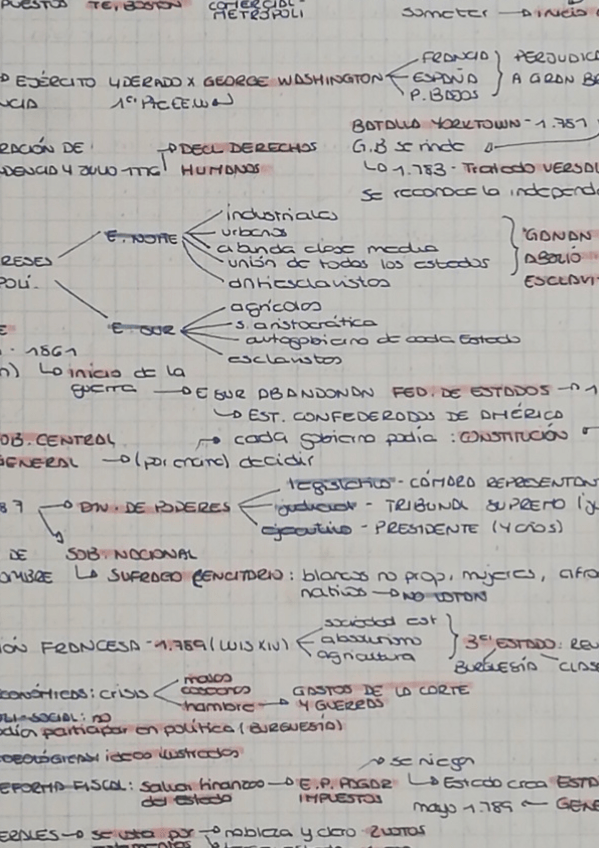 PUESTOS TE, BOSTON COMERCIAL- METRÓPOLI someter → inicio
EJÉRCITO LIDERADO X GEORGE WASHINGTON FRANCIA PERJUDICA
ESPAÑA A GRAN BR
P. BAJOS
NCIA 1er P.EEUU
BATALLA YORKTOWN - 1.781
RACIÓN DE → DECL DERECHOS G.B se rinde
DENCIA 4 JULIO 1776 HUMANOS ↳ 1.783 - Tratado VERSAL
se reconoce la independ
industriales
urbanos
E. NORTE abunda clase media GANAN
RESES unión de todos los estados ABOLIO
POLÍ. antiesclavistas ESCLAVI
agrícolas
E. SUR s. aristocrática
autogobierno de cada Estado
· 1861 esclavistas
n) ↳ inicio de la
guerra → E SUR ABANDONAN FED. DE ESTADOS → 1
↳ EST. CONFEDERADOS DE AMÉRICA
OB. CENTRAL → cada gobierno podía : CONSTITUCIÓN
GENERAL → decidir
legislativo - CÁMARA REPRESENTAN
87 → DIV. DE PODERES judicial - TRIBUNAL SUPREMO
ejecutivo - PRESIDENTE (4 AÑOS)
DE SOB. NACIONAL
OMBRE ↳ SUFRAGIO CENSITARIO : blancos no prop, mujeres, afro
nativos → NO VOTAN
IÓN FRANCESA - 1.789 (LUIS XIV) sociedad est
absolutismo 3er ESTADO: REV
agricultura BURGUESÍA CLASE
CONÓMICAS: crisis malas
cosechas → GASTOS DE LA CORTE
hambre Y GUERRAS
SOCIAL: no
odía participar en política (BURGUESÍA)
DEOLÓGICAS: ideas ilustradas
→ se niega
REFORMA FISCAL: salvar finanzas → E.P. PAGAR ↳ Estado crea ESTA
del estado IMPUESTOS mayo 1.789 ← GENE
ERALES → se vota por → nobleza y clero 2 VOTOS
estamentos